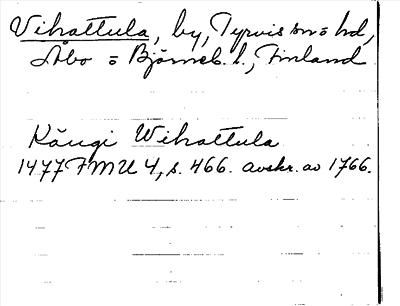 Vihattula, by, Tyrvis sn o hd,
Åbo o Björneb. l., Finland
Käugi Wihattula
1477 FMU 4, s. 466. avskr. av 1766.